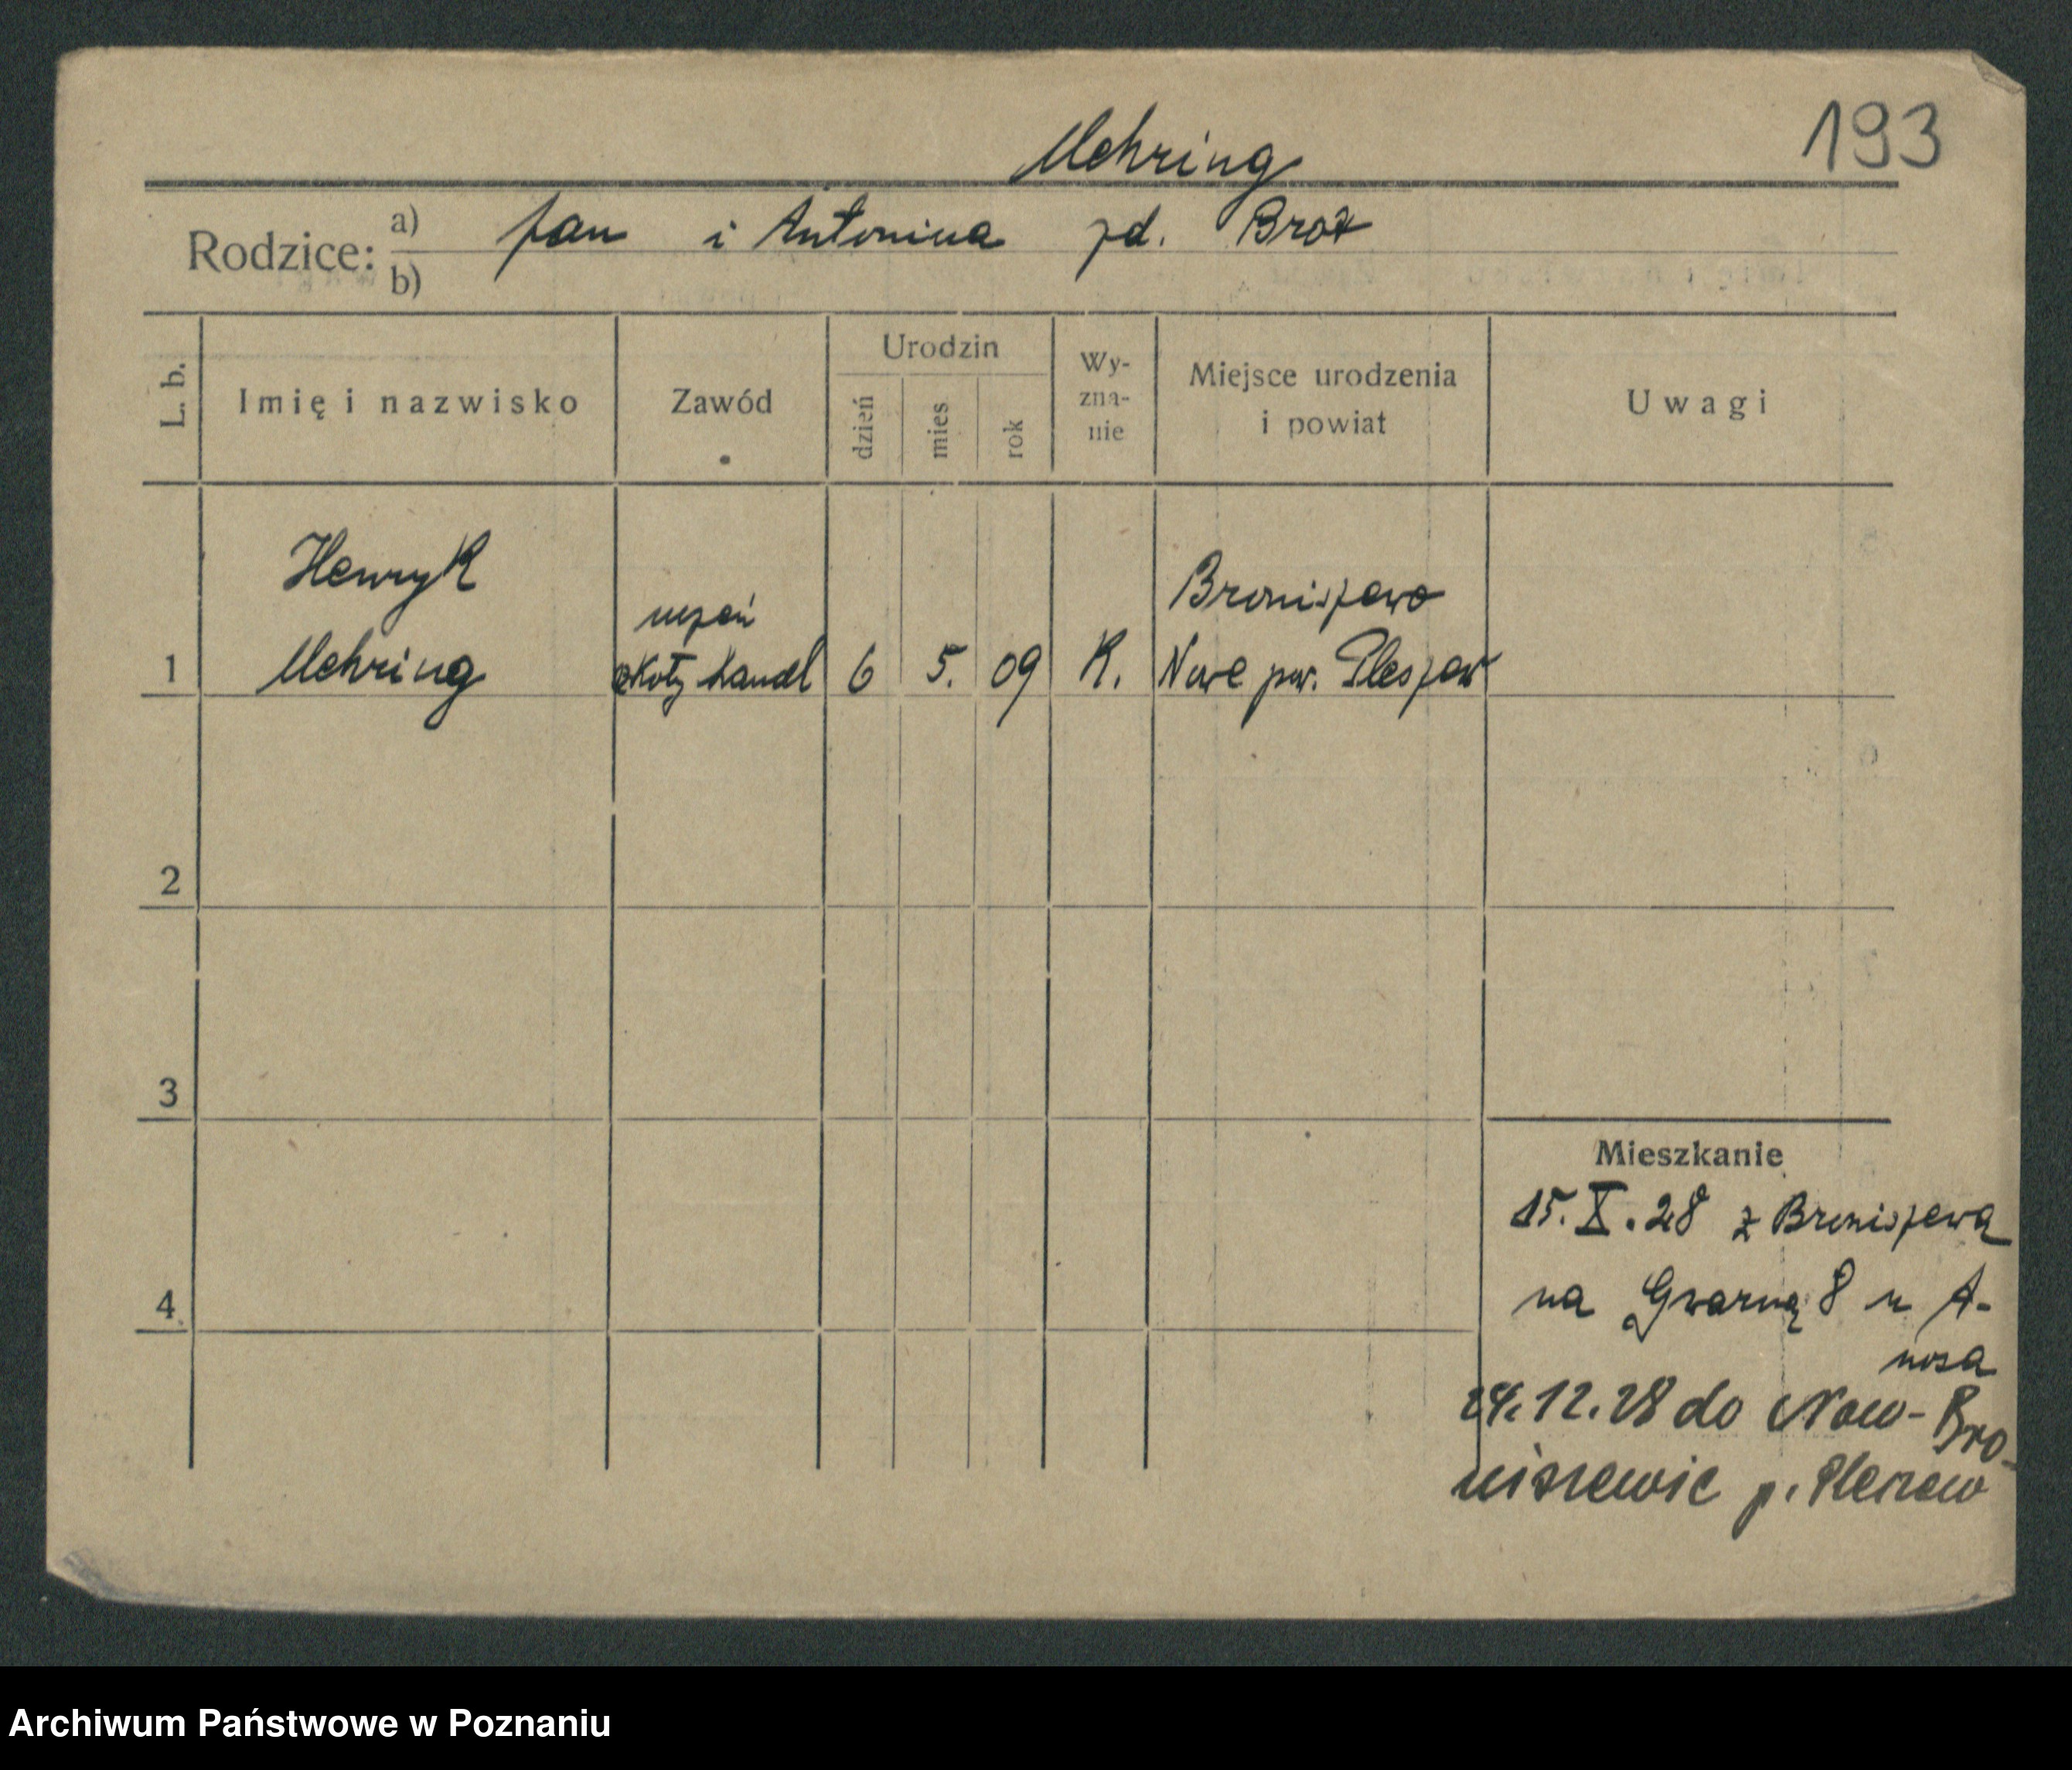 193
Mehring
Rodzice: a) Jan i Antonina zd. Broż
b)
L. b. Imię i nazwisko Zawód Urodzin dzień mies rok Wy-zna-nie Miejsce urodzenia i powiat Uwagi
Henryk
uczeń Broniszewo
1 Mehring szkoły handl 6 5. 09 K. Nowe pow. Pleszew
2
3
Mieszkanie
15.X.28 z Broniszewa
4 na Gwarną 8 u A-
nosa
24.12.28 do Now-Bro-
niszewic p. Pleszew
Archiwum Państwowe w Poznaniu